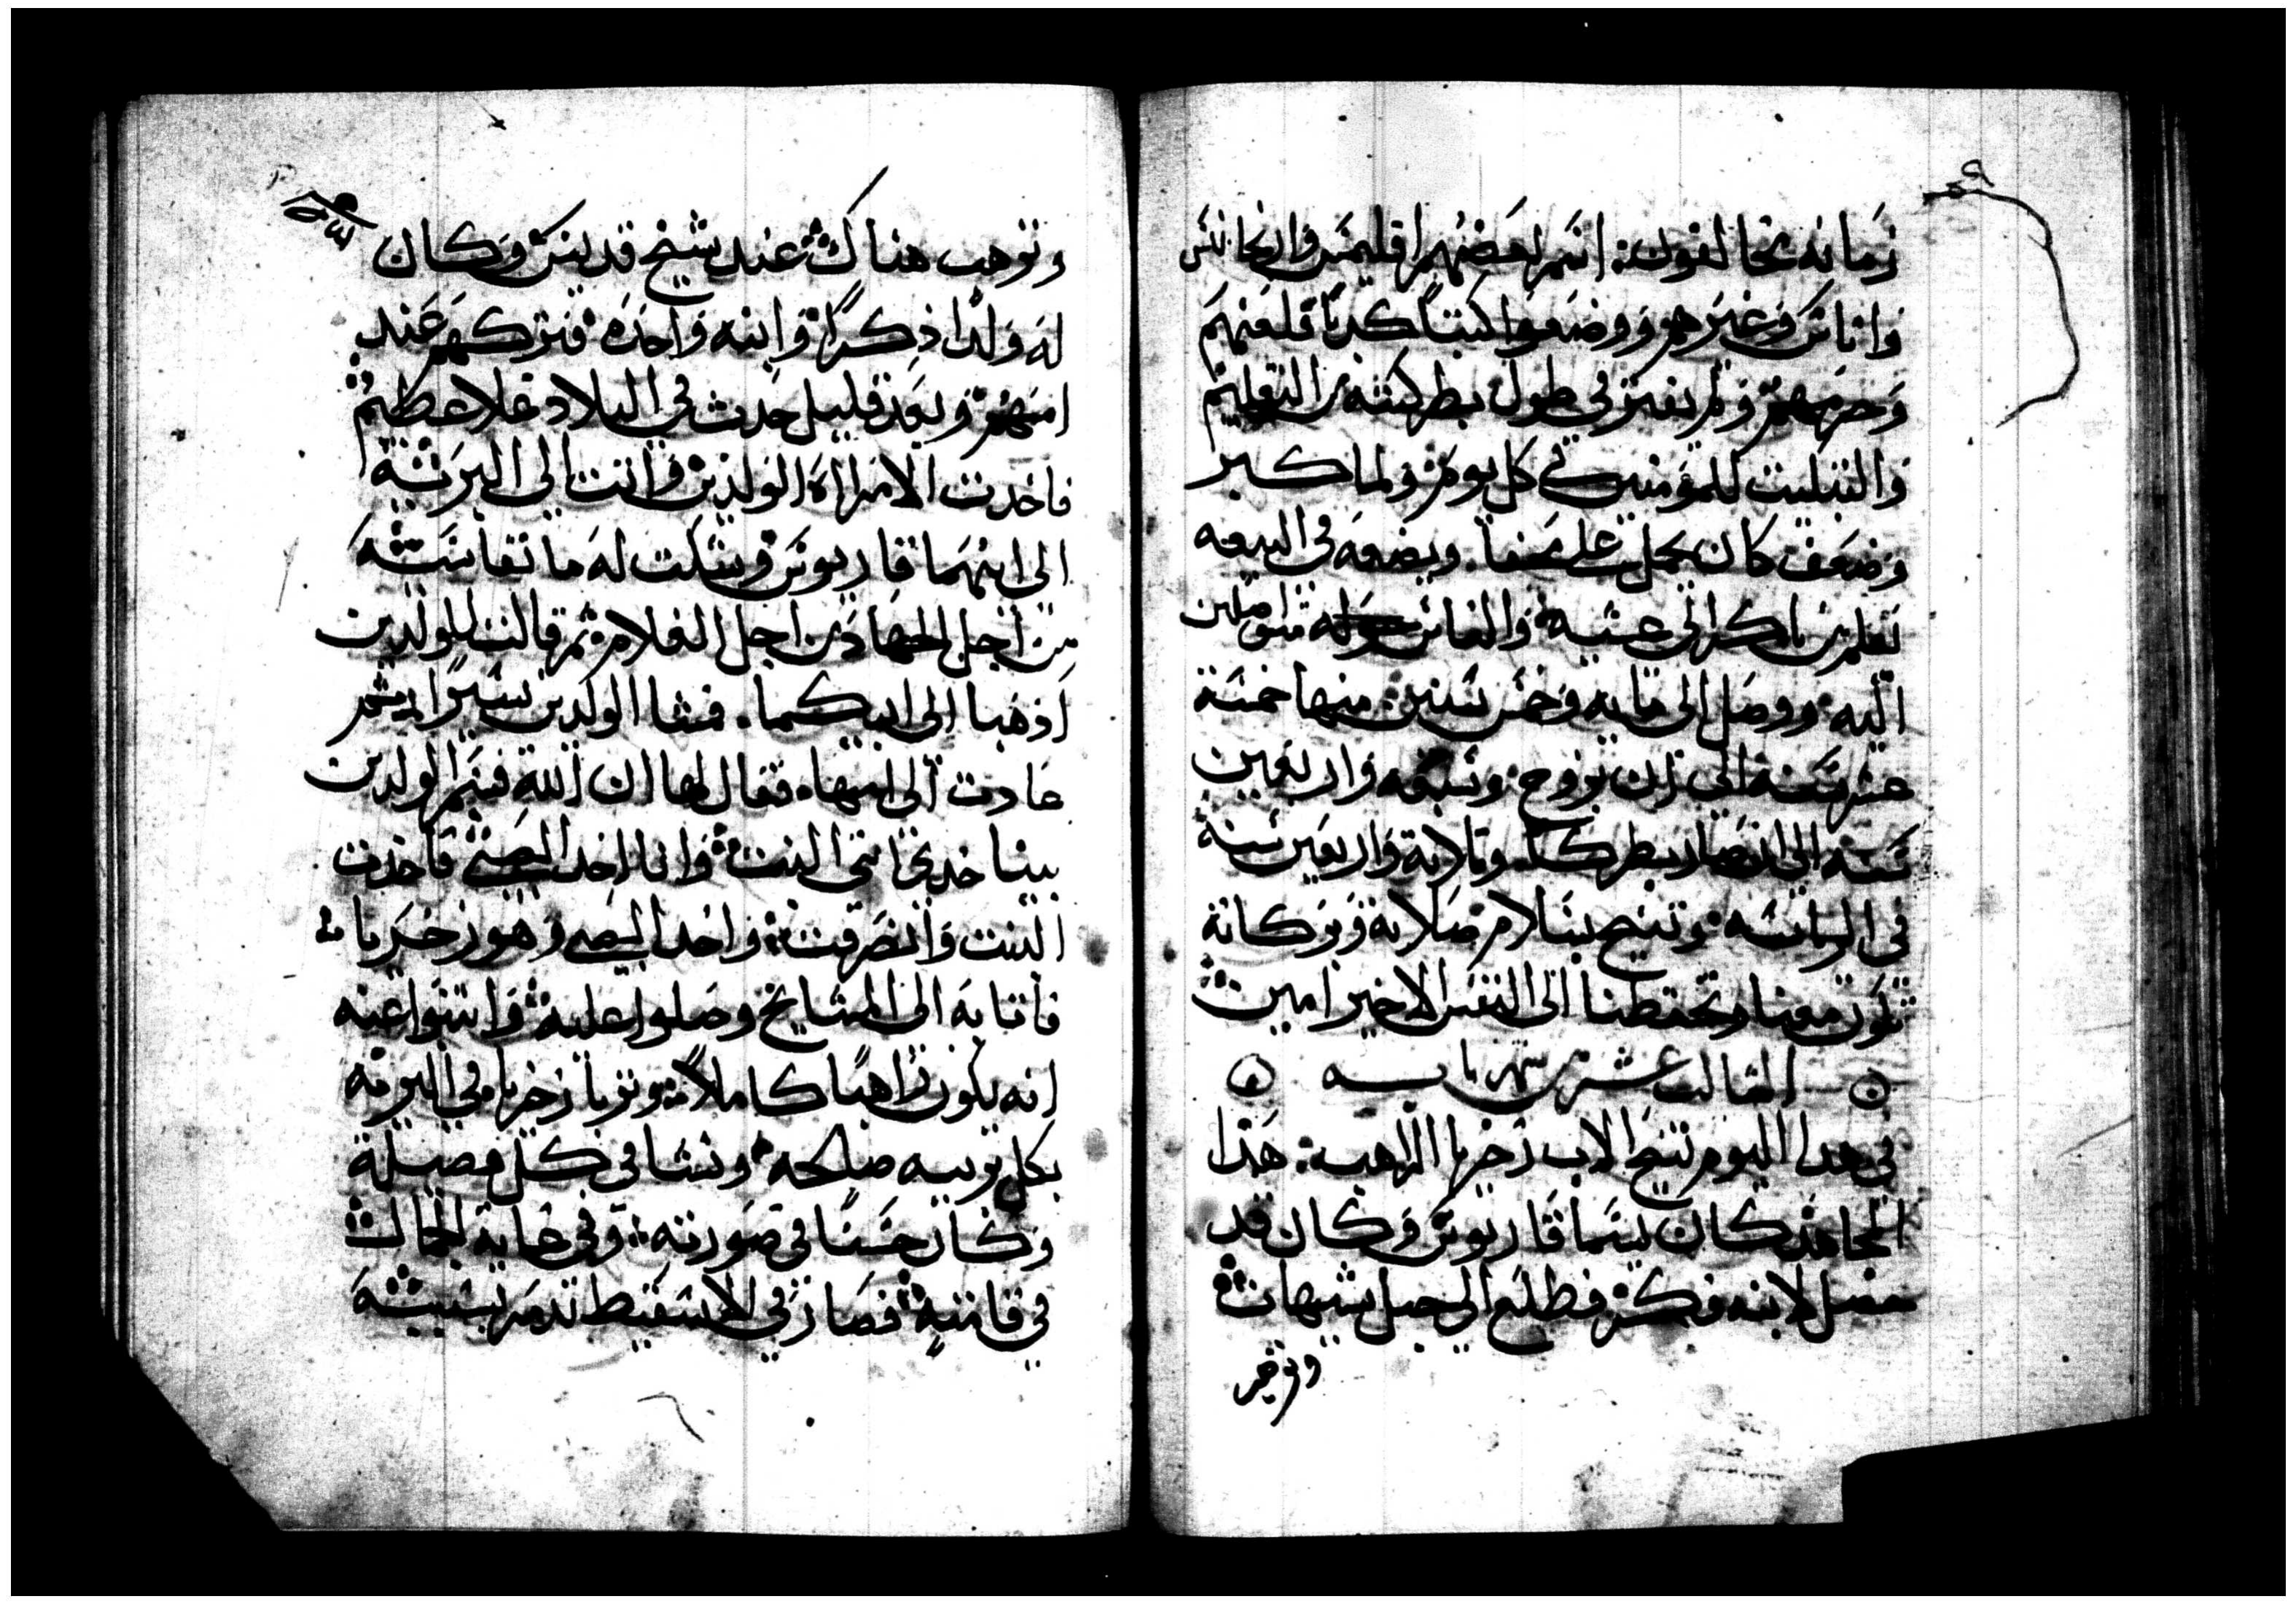 زمانه مخالفون: اسم بعضهم اقليمس واريجانس
واناس وغيرهم ووضعوا كتبا كدبا فلعنهم
وحرمهم ولم يفتر في طول بطركيته من التعليم
والتبكيت للمؤمنين في كل يوم ولما كبر
وضعف كان يحمل على محفا. ويضعه في البيعه
يعلم من باكر الى عشيه والناس متواصلين
اليه ووصل الى مايه وخمس سنين منها خمسة
عشر سنه الى ان تزوج وسبعه واربعين
سنه الى ان صار بطركا وتلاتة واربعين سنة
في الرياسه وتنيح بسلام صلاته وبركاته
تكون معنا وتحفظنا الى النفس الاخير امين
التالت عشر من شهر بابه
في هدا اليوم تنيح الاب زخريا الراهب: هدا
المجاهد كان يسما قاريوس وكان قد
حصل لابنه وكر فطلع الى جبل شيهات
وترهب
وترهب هناك عند شيخ قديس وكان
له ولدا ذكرا وابنه واحده فتركهم عند
امهم وبعد قليل حدث في البلاد غلا عظيم
فاخدت الامراة الولدين واتت الى البرية
الى ابيهما قاريوس وشكت له ما تقاسيه
من اجل الجهاد من اجل الغلا ثم قالت للولدين
اذهبا الى ابيكما. فمشا الولدين يسيرا ثم
عادت الى امها فقال لها ان الله قسم الولدين
بيننا خدي انتي البنت وانا اخد الصبي فاخدت
البنت وانصرفت واخد الصبي وهو زخريا
فاتا به الى المشايخ وصلوا عليه واتنبوا عنه
انه يكون راهبا كاملا وتربا زخريا في البريه
بكل تربيه صالحه ونشا في كل فضيلة
وكان حسنا في صورته: وفي غاية الجمال
في قامته فصار في الاسقيط تدمر بسببه